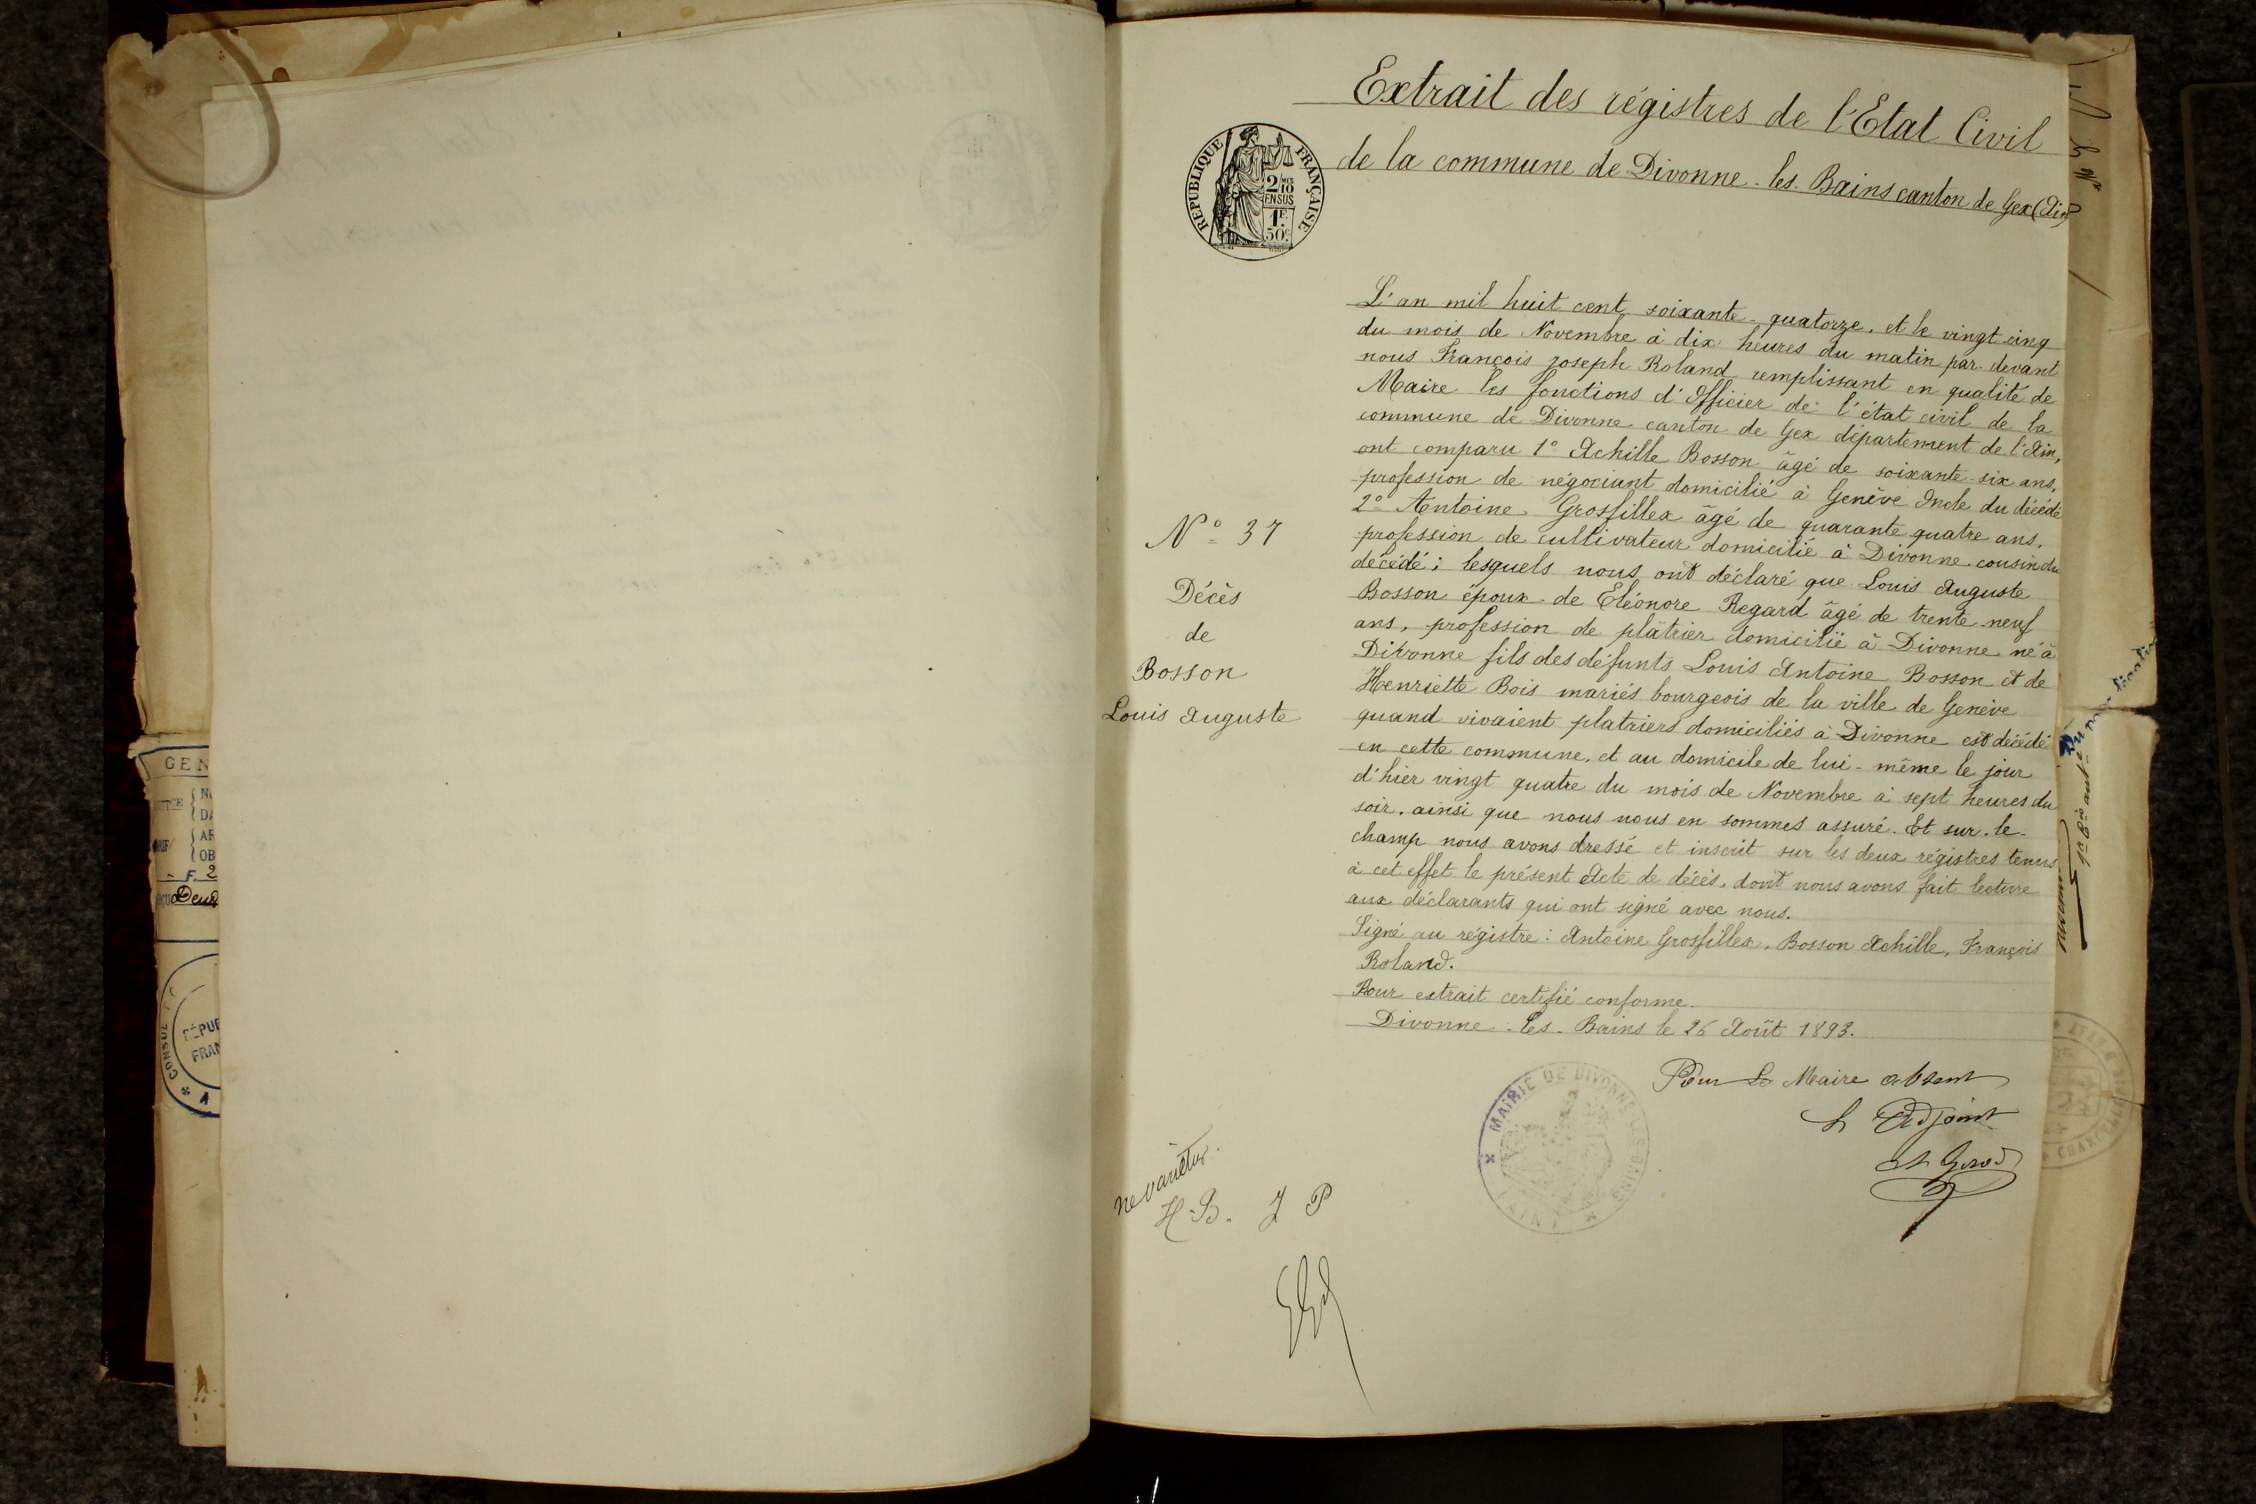 Extrait des régistres de l'Etat Civil
de la commune de Divonne-les-Bains canton de Gex (Ain)
RÉPUBLIQUE FRANÇAISE
2/10
EN SUS
1F.
50c
L'an mil huit cent soixante-quatorze, et le vingt cinq
du mois de Novembre à dix heures du matin par devant
nous François Joseph Roland remplissant en qualité de
Maire les fonctions d'Officier de l'état civil de la
commune de Divonne canton de Gex département de l'Ain,
ont comparu 1° Achille Bosson âgé de soixante-six ans,
profession de négociant domicilié à Genève Oncle du décédé
2° Antoine Grosfillex âgé de quarante quatre ans,
profession de cultivateur domicilié à Divonne cousin du
décédé; lesquels nous ont déclaré que Louis Auguste
Bosson époux de Eléonore Regard âgé de trente-neuf
ans, profession de plâtrier domicilié à Divonne né à
Divonne fils des défunts Louis Antoine Bosson et de
Henriette Bois mariés bourgeois de la ville de Genève
quand vivaient platriers domiciliés à Divonne est décédé
en cette commune, et au domicile de lui-même le jour
d'hier vingt quatre du mois de Novembre à sept heures du
soir, ainsi que nous nous en sommes assuré. Et sur-le-
champ nous avons dressé et inscrit sur les deux régistres tenus
à cet effet le présent Acte de décès, dont nous avons fait lecture
aux déclarants qui ont signé avec nous.
Signé au régistre: Antoine Grosfillex, Bosson Achille, François
Roland.
Pour extrait certifié conforme.
Divonne-les-Bains le 26 Août 1893.
Pour Le Maire absent
L'Adjoint
N° 37
Décès
de
Bosson
Louis Auguste
MAIRIE DE DIVONNE LES BAINS
(AIN)
ne varietur.
H.B. J P
GEN
F. 2
CONSUL
RÉPU
FRAN